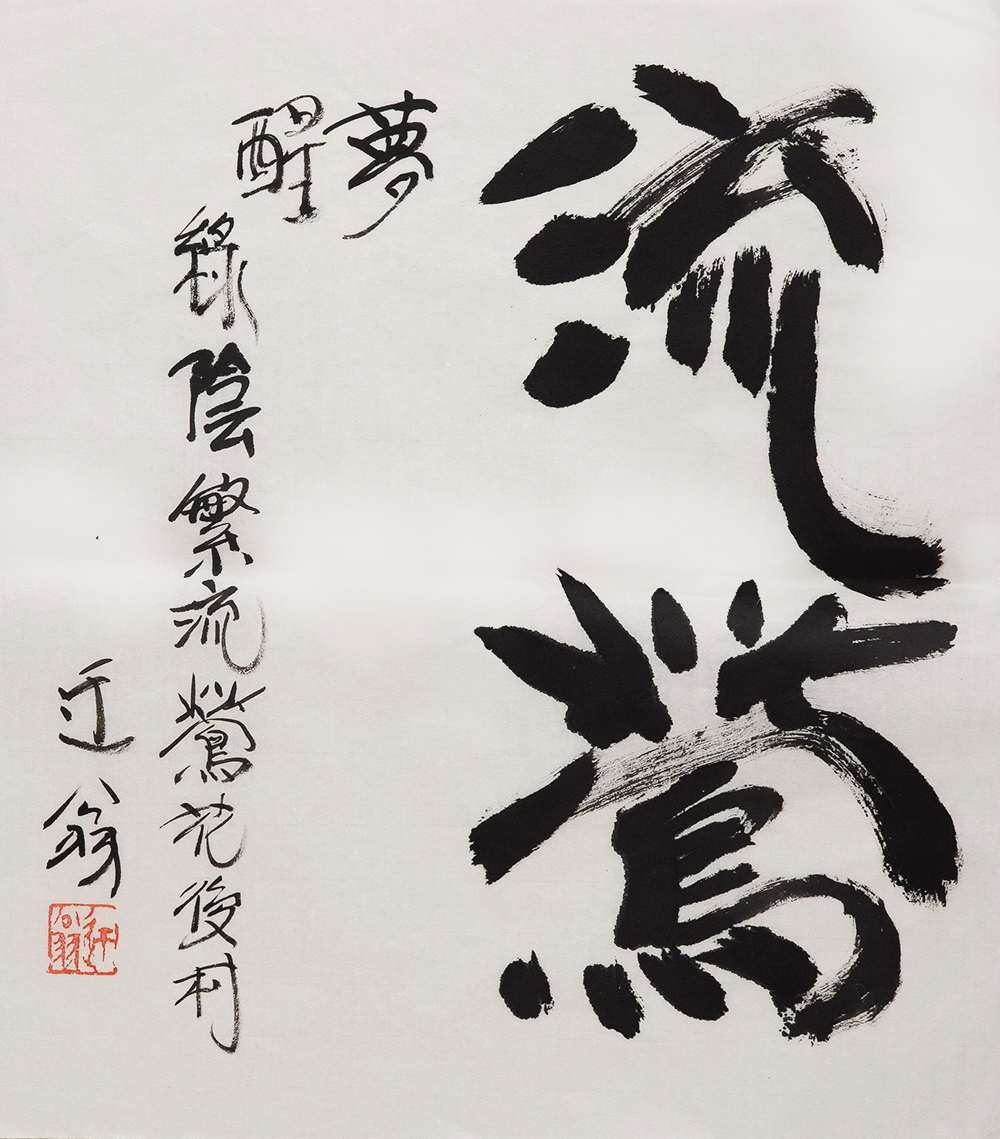 流鶯
夢
醒
綠陰繁流鶯花後村
迁翁
迁翁